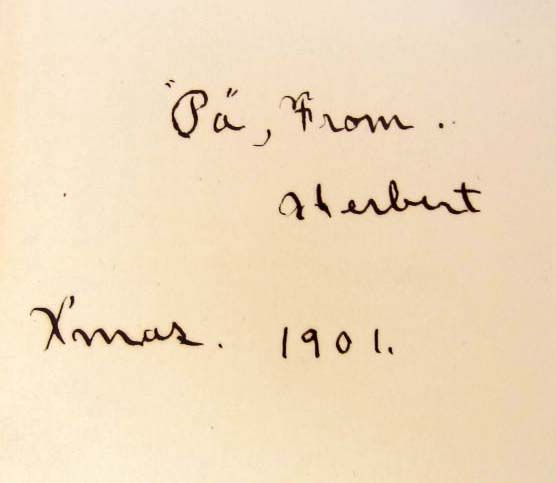 "Pa", From.
Herbert
Xmas. 1901.